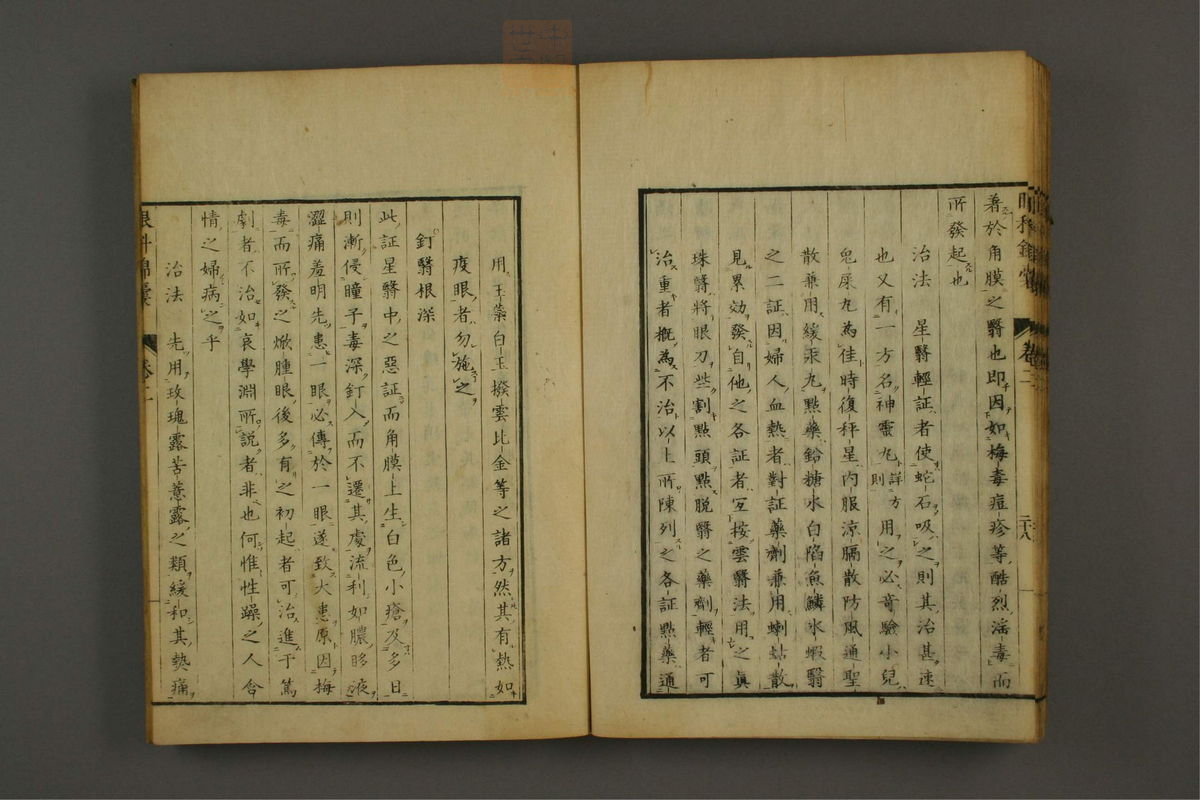 着於角膜之翳也即因如梅毒痘疹等酷烈淫毒而
所發起也
治法　星翳輕証者使蛇石吸之則其治甚速
也又有一方名神靈丸詳方則用之必奇驗小兒
兒屎丸為佳時復秤星内服涼膈散防風通聖
散兼用緩汞丸點藥鉛糖水白陷魚鱗水蝦翳
之二証因婦人血熱者對証藥劑兼用蝲蛄散
見累効發自他之各証者互按雲翳法用之眞
珠翳將眼刀些割點頭點脱翳之藥劑輕者可
治重者概為不治以上所陳列之各証點藥通
用玉藥白玉撥雲比金等之諸方然其有熱如
疫眼者勿施之
釘翳根深
此証星翳中之惡証而角膜上生白色小瘡及多日
則漸侵瞳子毒深釘入而不遷其處流利如膿眵液
澀痛羞明先患一眼必傳於一眼遂致大患原因梅
毒而所發之焮腫眼後多有之初起者可治進于篤
劇者不治如哀學淵所説者非也何惟性躁之人含
情之婦病之乎
治法　先用玫瑰露苦薏露之類緩和其熱痛
眼科錦囊　卷二
卷二　二十八